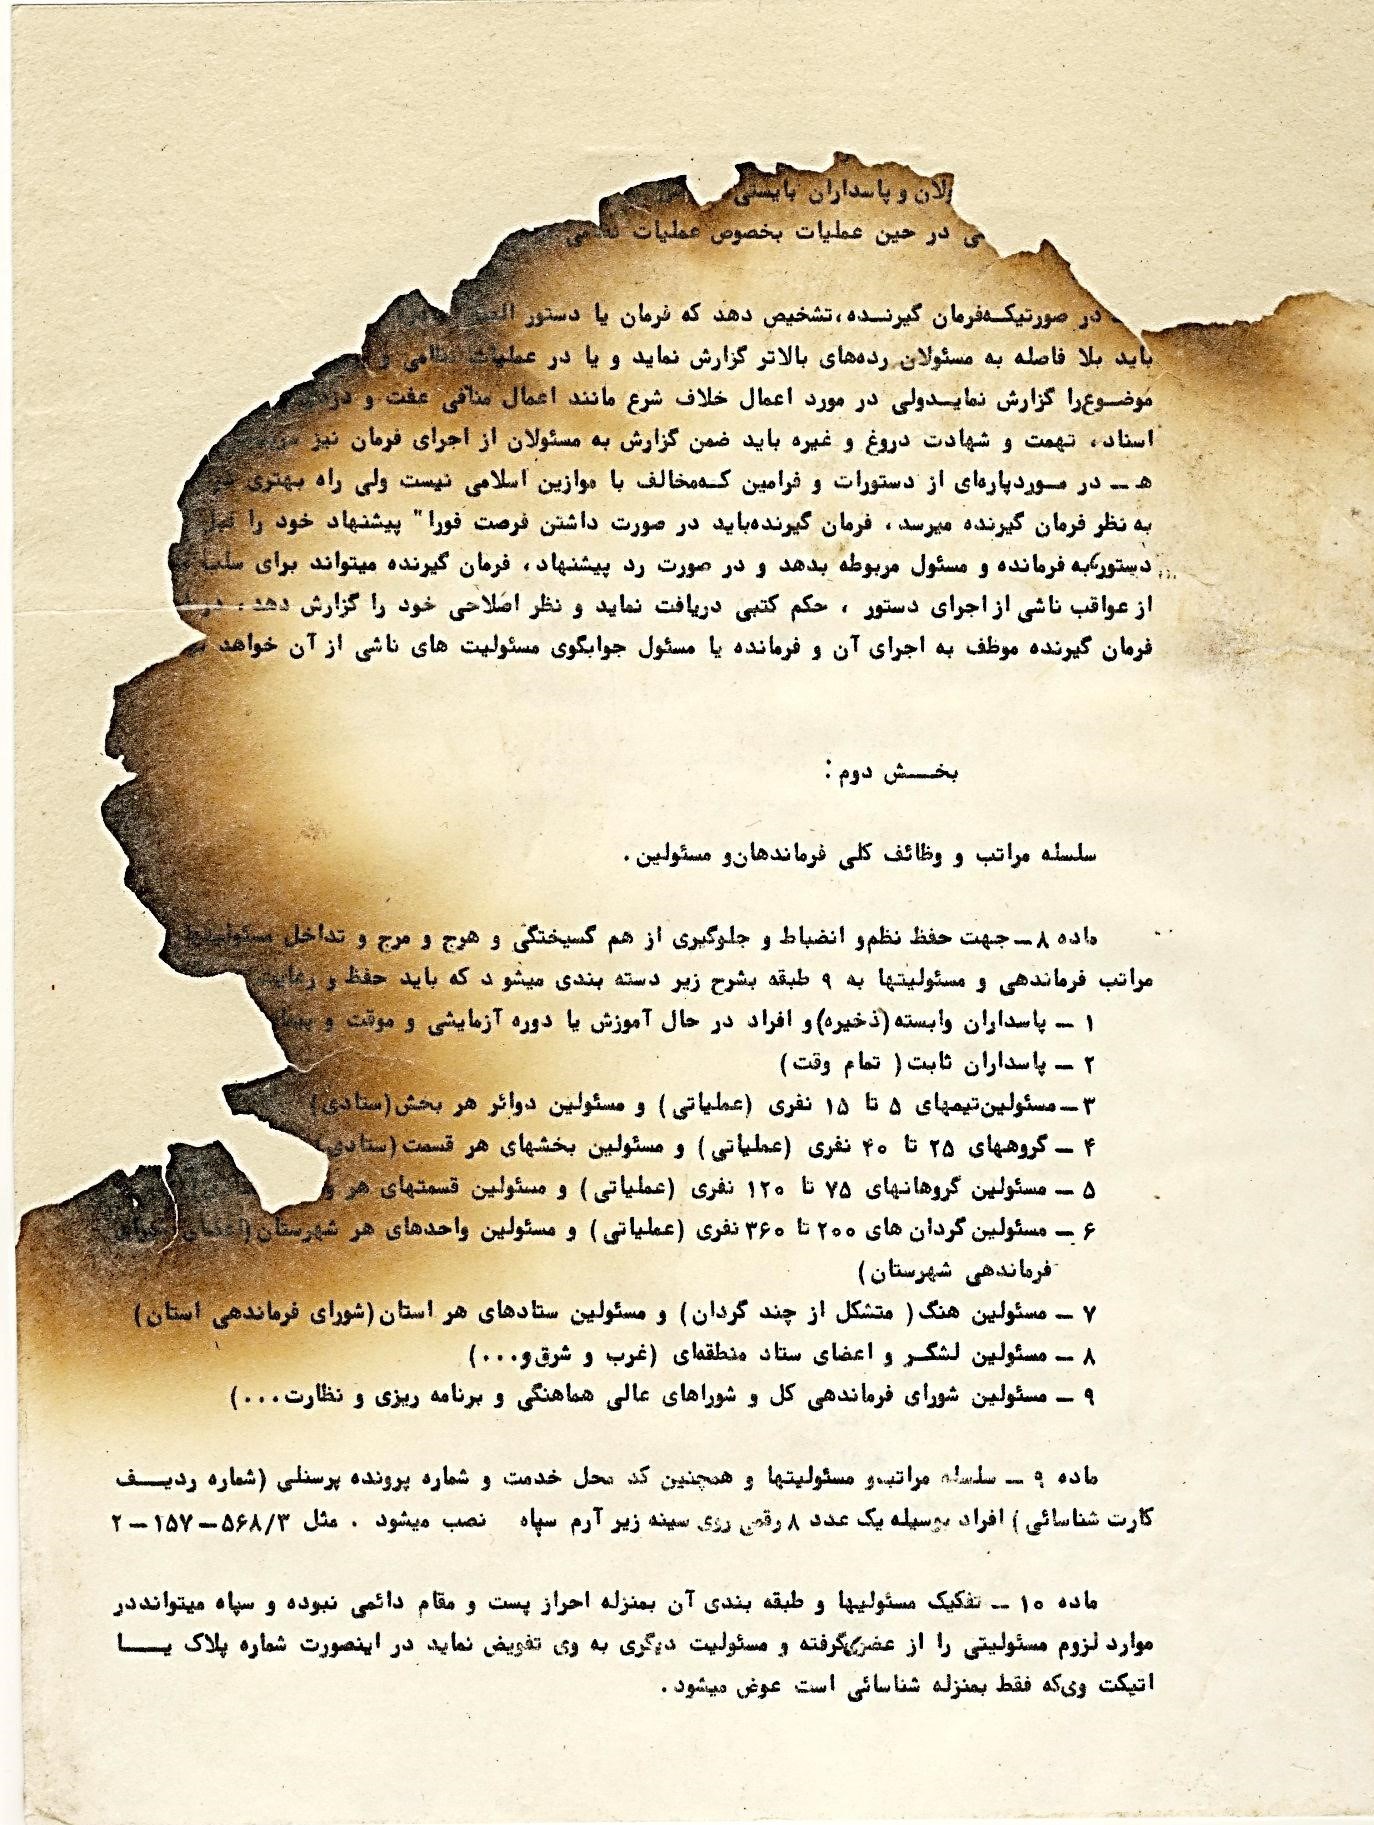 ولان و پاسداران بایستی
در حین عملیات بخصوص عملیات نظامی
ـ در صورتیکه‌فرمان گیرنده،تشخیص دهد که فرمان یا دستور
باید بلا فاصله به مسئولان رده‌های بالاتر گزارش نماید و یا در عملیات نظامی و
موضوع‌را گزارش نمایدولی در مورد اعمال خلاف شرع مانند اعمال منافی عفت و
اسناد، تهمت و شهادت دروغ و غیره باید ضمن گزارش به مسئولان از اجرای فرمان نیز
هـ ـ در موردپاره‌ای از دستورات و فرامین که‌مخالف با موازین اسلامی نیست ولی راه بهتری
به نظر فرمان گیرنده میرسد، فرمان گیرنده‌باید در صورت داشتن فرصت فورا" پیشنهاد خود را
دستور،به فرمانده و مسئول مربوطه بدهد و در صورت رد پیشنهاد، فرمان گیرنده میتواند برای
از عواقب ناشی از اجرای دستور ، حکم کتبی دریافت نماید و نظر اصلاحی خود را گزارش دهد،
فرمان گیرنده موظف به اجرای آن و فرمانده یا مسئول جوابگوی مسئولیت های ناشی از آن خواهد
بخش دوم :
سلسله مراتب و وظائف کلی فرماندهان‌و مسئولین .
ماده ۸ ـ جهت حفظ نظم‌و انضباط و جلوگیری از هم گسیختگی و هرج و مرج و تداخل مسئولیتها
مراتب فرماندهی و مسئولیتها به ۹ طبقه بشرح زیر دسته بندی میشود که باید حفظ و رعایت
۱ ـ پاسداران وابسته (ذخیره) و افراد در حال آموزش یا دوره آزمایشی و موقت و
۲ ـ پاسداران ثابت ( تمام وقت)
۳ ـ مسئولین‌تیمهای ۵ تا ۱۵ نفری (عملیاتی) و مسئولین دوائر هر بخش (ستادی)
۴ ـ گروههای ۲۵ تا ۴۰ نفری (عملیاتی) و مسئولین بخشهای هر قسمت (ستادی)
۵ ـ مسئولین گروهانهای ۷۵ تا ۱۲۰ نفری (عملیاتی) و مسئولین قسمتهای هر
۶ ـ مسئولین گردان های ۲۰۰ تا ۳۶۰ نفری (عملیاتی) و مسئولین واحدهای هر شهرستان (اعضای شورای
فرماندهی شهرستان)
۷ ـ مسئولین هنگ ( متشکل از چند گردان) و مسئولین ستادهای هر استان (شورای فرماندهی استان)
۸ ـ مسئولین لشگر و اعضای ستاد منطقه‌ای (غرب و شرق‌و...)
۹ ـ مسئولین شورای فرماندهی کل و شوراهای عالی هماهنگی و برنامه ریزی و نظارت...)
ماده ۹ ـ سلسله مراتب‌و مسئولیتها و همچنین کد محل خدمت و شماره پرونده پرسنلی (شماره ردیف
کارت شناسائی) افراد بوسیله یک عدد ۸ رقمی روی سینه زیر آرم سپاه نصب میشود . مثل ۵۶۸/۳ ـ ۱۵۷ ـ ۲
ماده ۱۰ ـ تفکیک مسئولیها و طبقه بندی آن بمنزله احراز پست و مقام دائمی نبوده و سپاه میتوانددر
موارد لزوم مسئولیتی را از عضوی‌گرفته و مسئولیت دیگری به وی تفویض نماید در اینصورت شماره پلاک یا
اتیکت وی‌که فقط بمنزله شناسائی است عوض میشود .